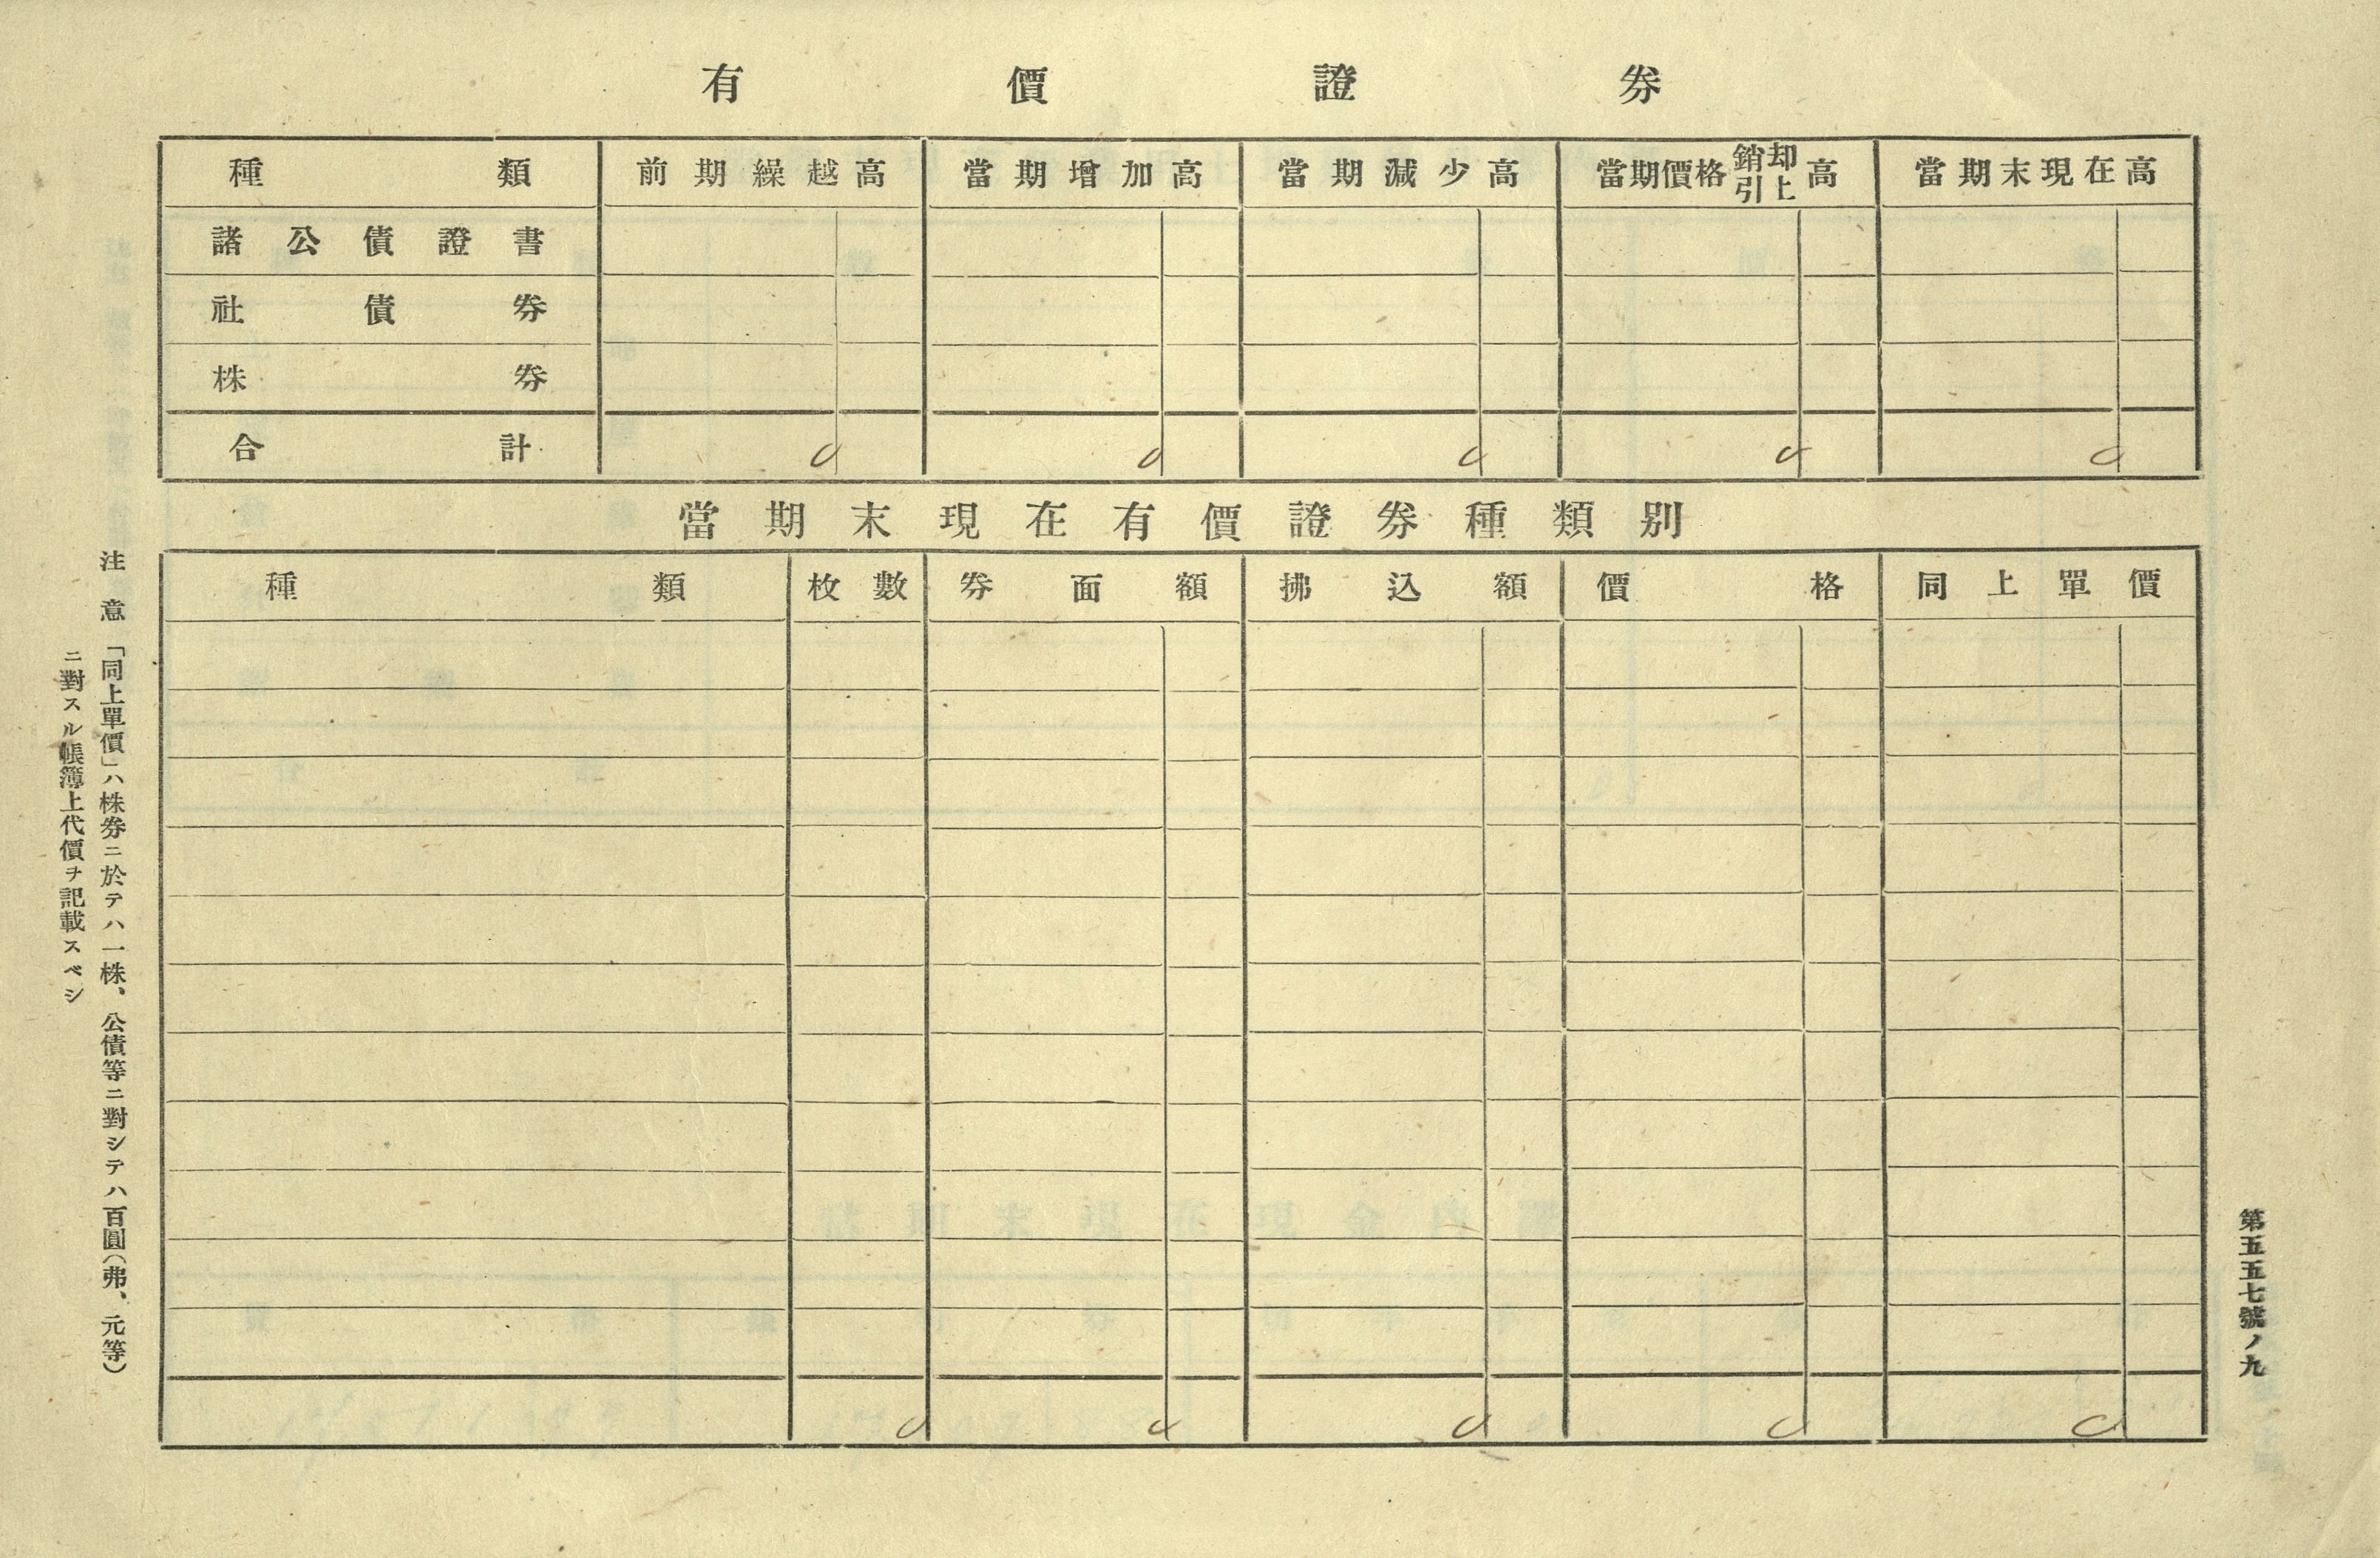 有價證券
種類 前期繰越高 當期增加高 當期減少高 當期價格銷却引上高 當期末現在高
諸公債證書
社債券
株券
合計 0 0 0 0 0
當期末現在有價證券種類別
種類 枚數 券面額 拂込額 價格 同上單價
0 0 0 0 0
第五五七號ノ九
注意「同上單價」ハ株券ニ於テハ一株、公債等ニ對シテハ百圓(弗、元等)
ニ對スル帳簿上代價ヲ記載スベシ